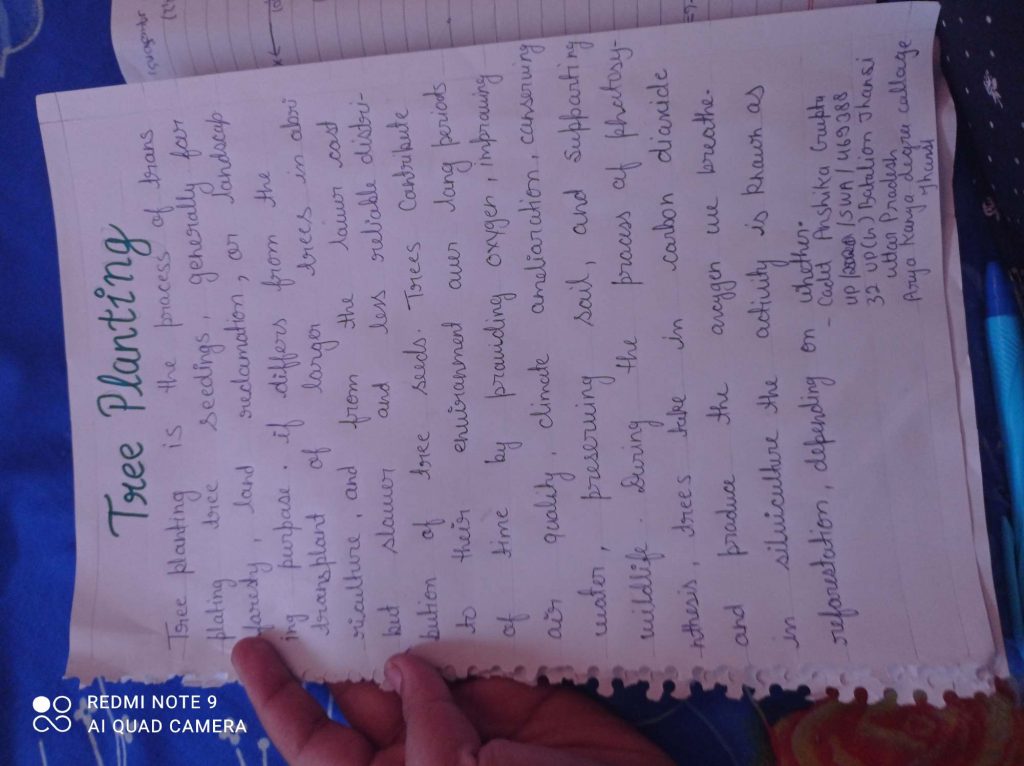 Tree Planting
Tree planting is the process of trans
plating tree seedings, generally for
foresty, land redamation, or landscap
ing purpose. if differs from the
transplant of larger trees in abri
riculture, and from the lower cost
but slower and less reliable distri-
bution of tree seeds. Trees contribute
to their enviranment over long periods
of time by providing oxygen, improving
air quality, climate amelioration, conserving
water, preserving soil, and supporting
wildlife. During the process of photosy-
nthesis, trees take in carbon dioxide
and produce the oxygen we breathe.
in silviculture the activity is known as
reforestation, depending on whother.
- Cadet Anshika Gupta
UP /SWA/469388
32 UP(h) Batalion Jhansi
uttar Pradesh
Arya Kanya degree collage
jhansi
REDMI NOTE 9
AI QUAD CAMERA